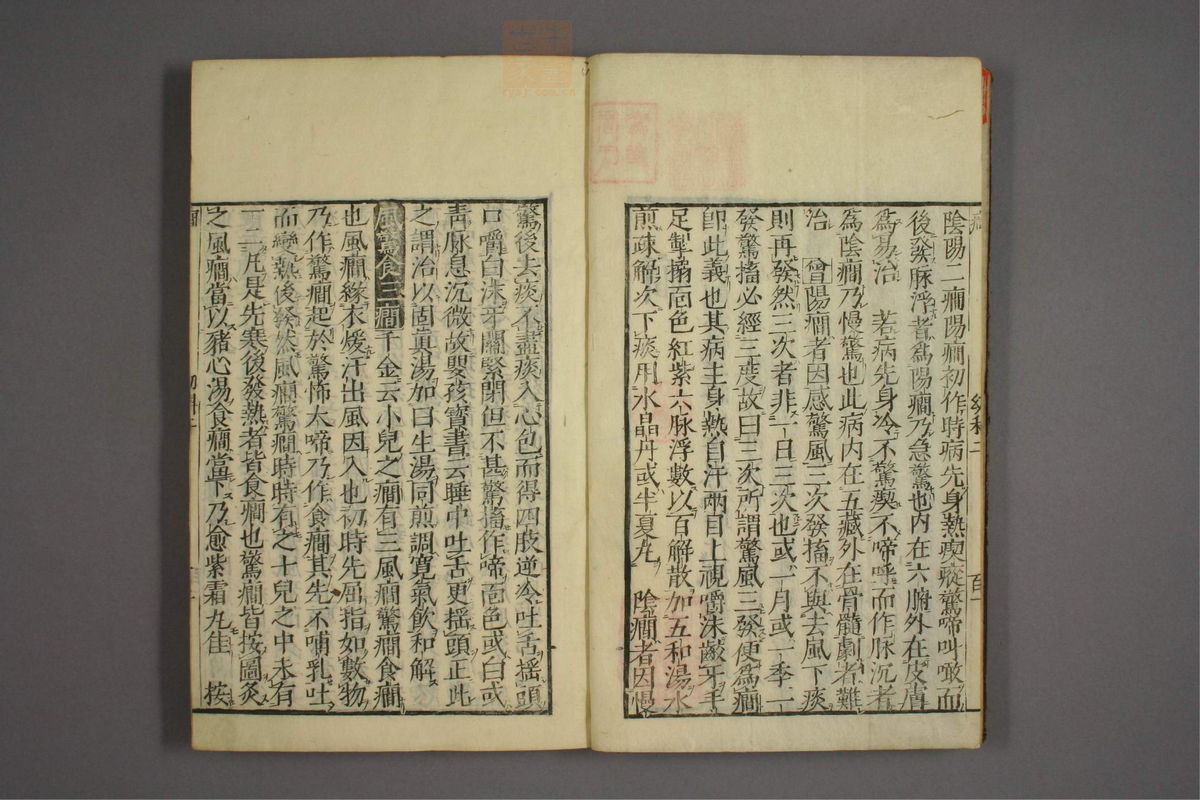 陰陽二癇陽癇初作時病先身熱瘈瘲驚啼叫噉而
後發脉浮者為陽癇乃急驚也內在六腑外在皮膚
為易治 若病先身冷不驚瘈不啼呼而作脉沉者
為陰癇乃慢驚也此病內在五藏外在骨髓劇者難
治 曾陽癇者因感驚風三次發搐不與去風下痰
則再發然三次者非一日三次也或一月或一季一
發驚搐必經三度故曰三次所謂驚風三發便為癇
卽此義也其病主身熱自汗兩目上視嚼沫齩牙手
足掣搦面色紅紫六脉浮數以百解散加五和湯水
煎疎解次下痰用水晶丹或半夏丸 陰癇者因慢
驚後去痰不盡痰入心包而得四肢逆冷吐舌搖頭
口嚼白沫牙關緊閉但不甚驚搐作啼面色或白或
靑脉息沉微故嬰孩寶書云睡中吐舌更搖頭正此
之謂治以固眞湯加日生湯同煎調寬氣飲和解
風驚食三癇千金云小兒之癇有三風癇驚癇食癇
也風癇緣衣煖汗出風因入也初時先屈指如數物
乃作驚癇起於驚怖大啼乃作食癇其先不哺乳吐
而變熱後發然風癇驚癇時時有之十兒之中未有
一二凡是先寒後發熱者皆食癇也驚癇皆按圖灸
之風癇當以豬心湯食癇當下乃愈紫霜丸佳 按